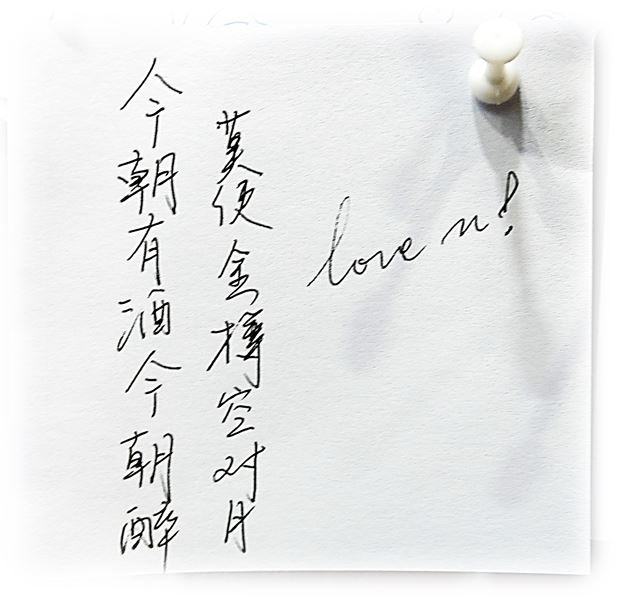 love u!
莫使金樽空对月
今朝有酒今朝醉